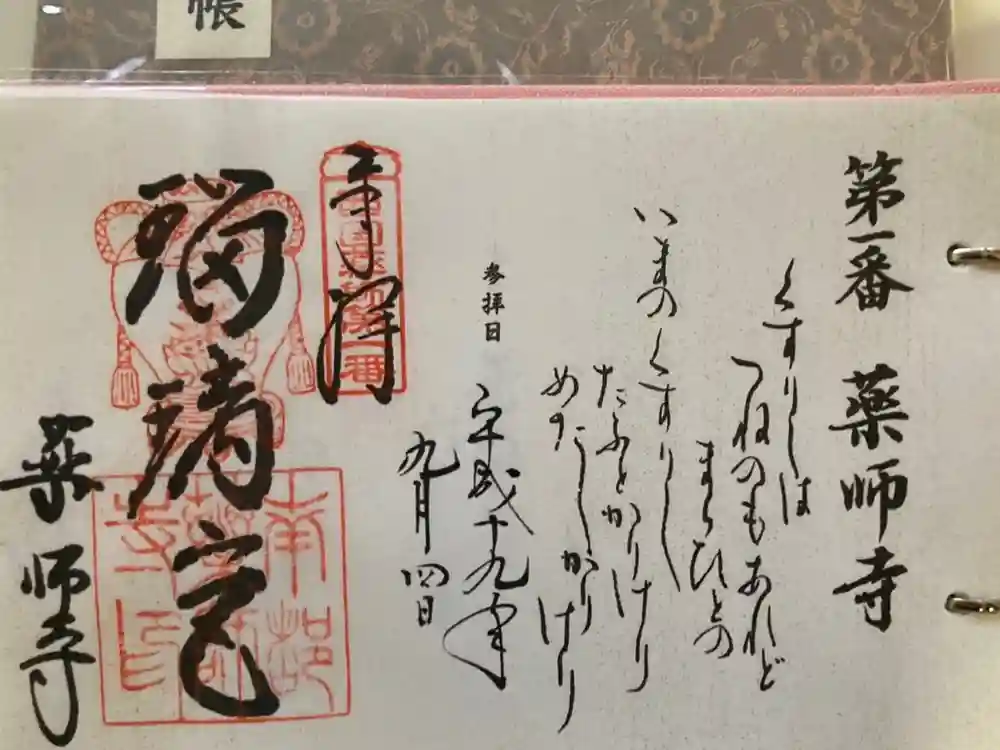 帳
第一番 薬師寺
くすりしは
つねのもあれど
まらひとの
いまのくすりし
たふとかりけり
めだしかりけり
参拝日
平成十九年
九月四日
奉拝
西国薬師第一番
瑠璃宮
薬師寺